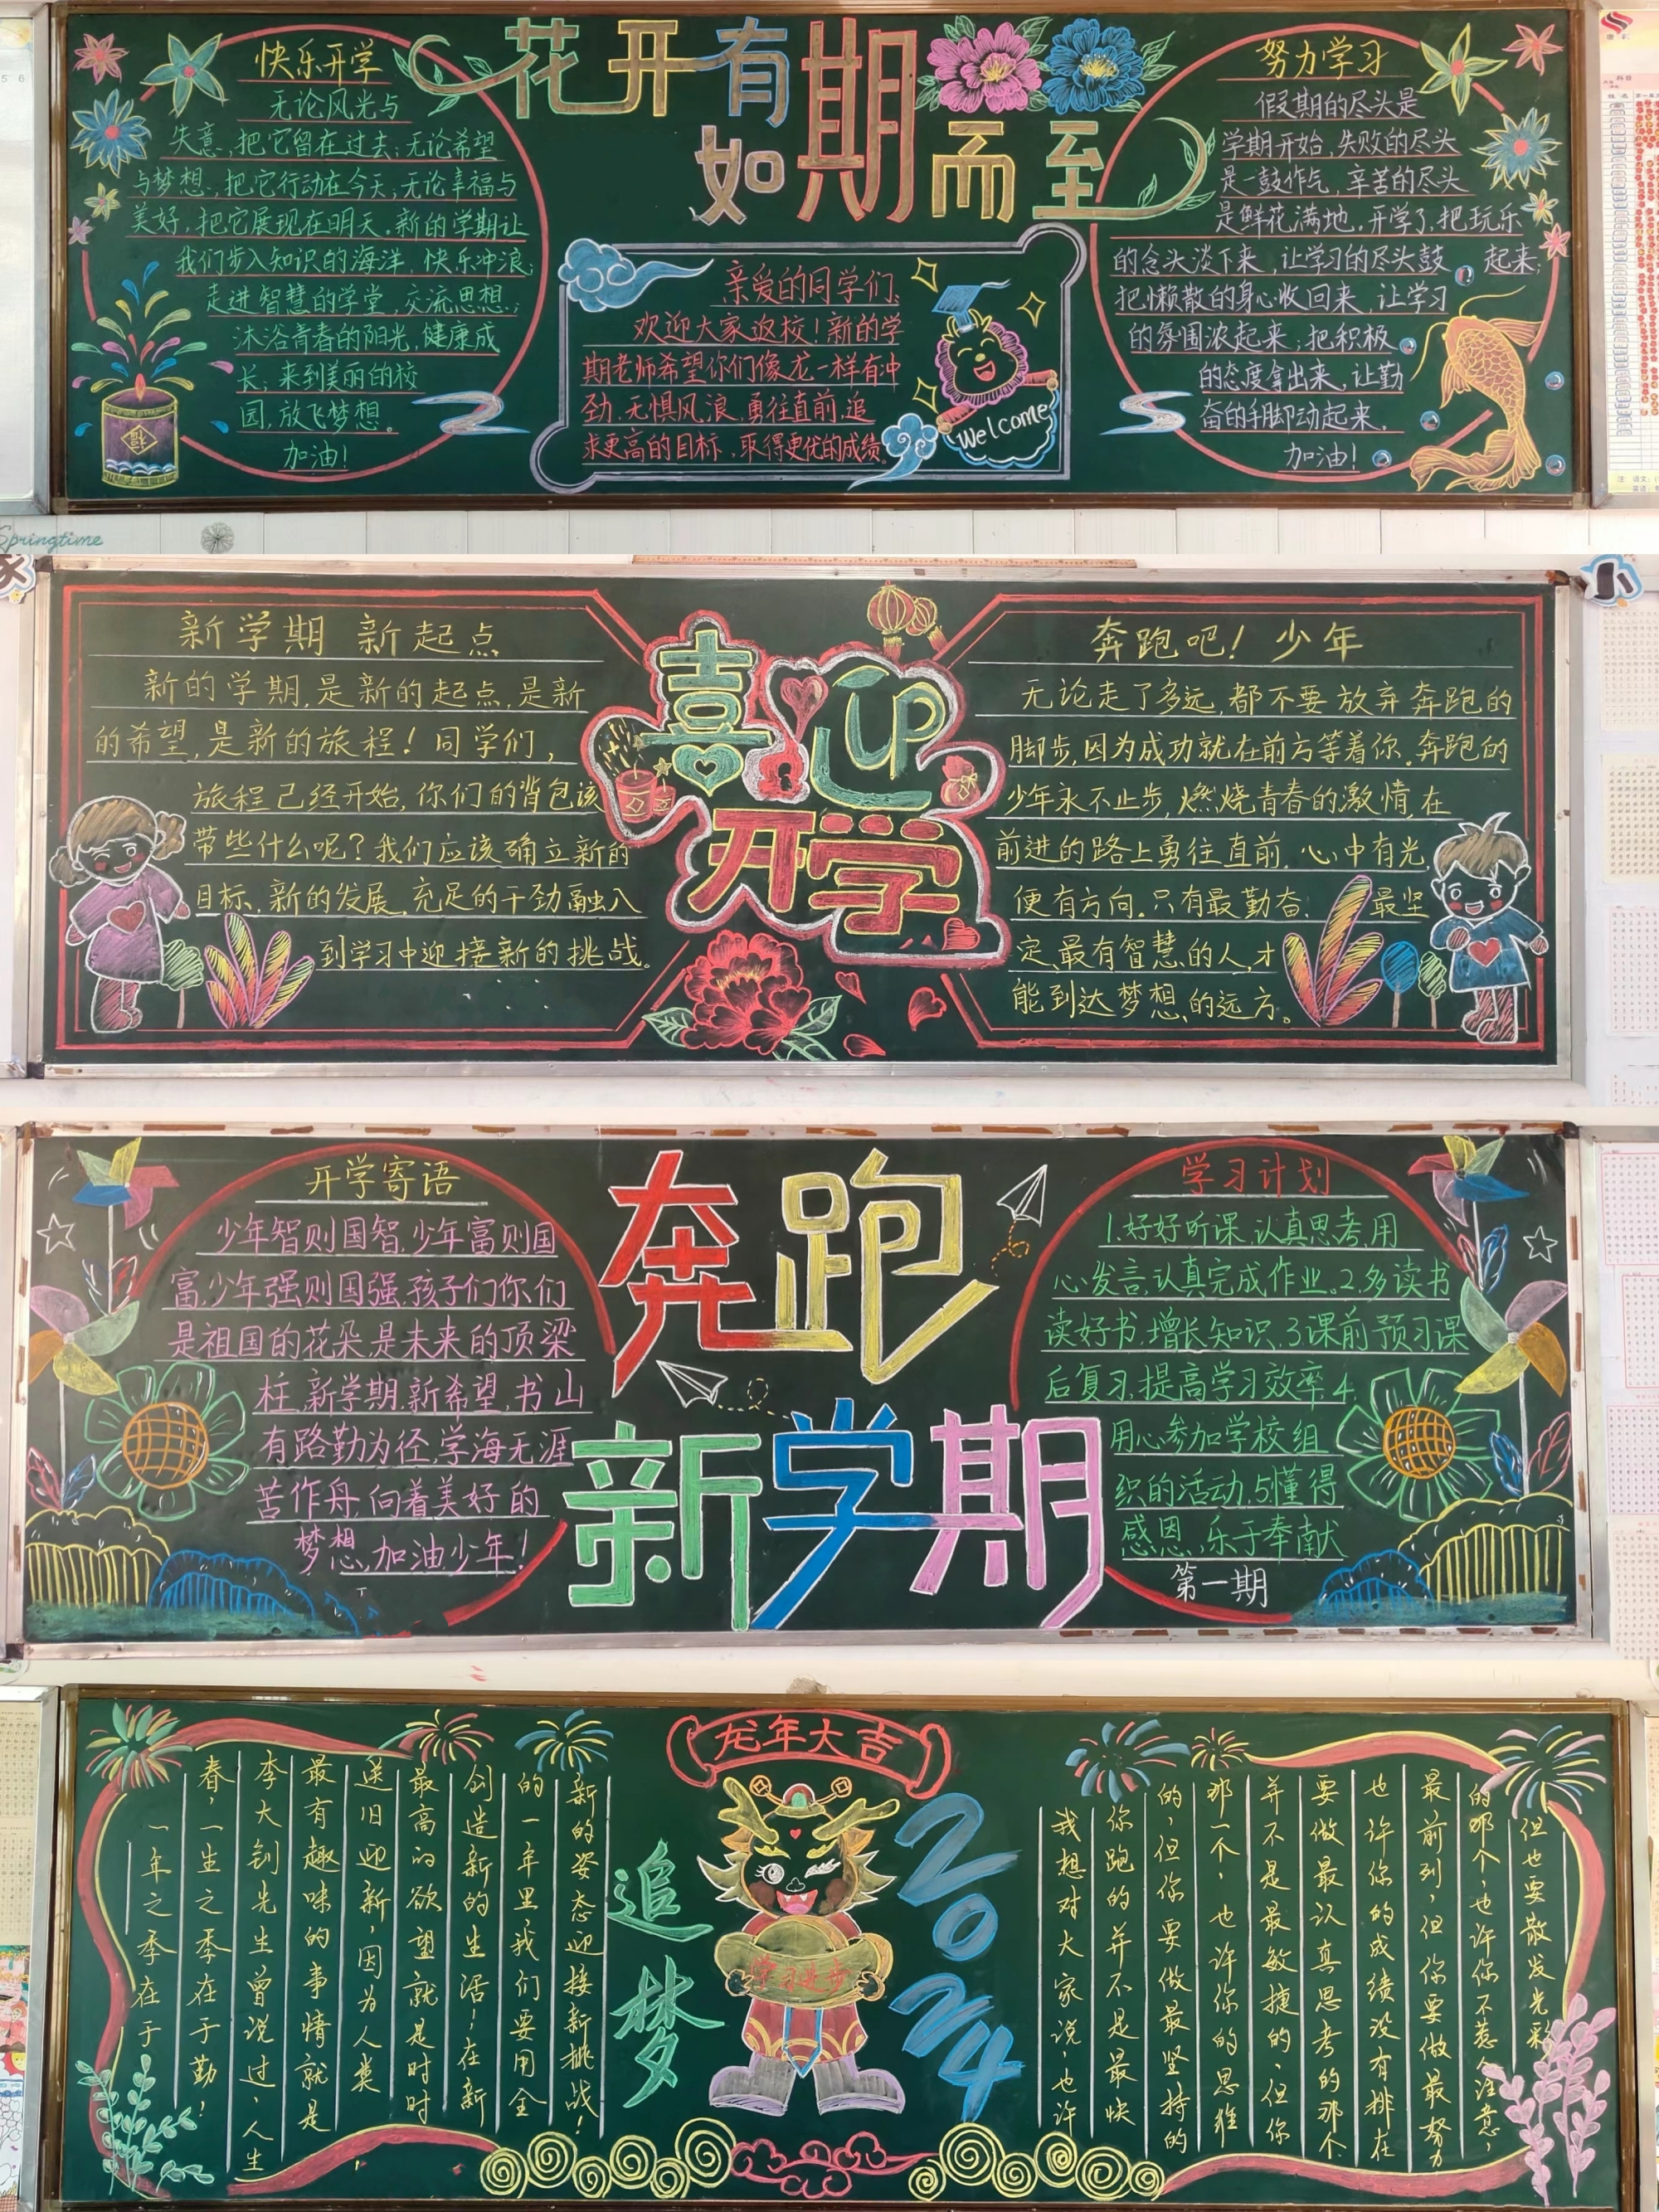 花开有期
如期而至
快乐开学
无论风光与
失意,把它留在过去;无论希望
与梦想,把它行动在今天;无论幸福与
美好,把它展现在明天。新的学期让
我们步入知识的海洋,快乐冲浪;
走进智慧的学堂,交流思想;
沐浴青春的阳光,健康成
长;来到美丽的校
园,放飞梦想。
加油!
福
亲爱的同学们、
欢迎大家返校!新的学
期老师希望你们像龙一样有冲
劲、无惧风浪、勇往直前、追
求更高的目标,取得更优的成绩。
Welcome
努力学习
假期的尽头是
学期开始,失败的尽头
是一鼓作气,辛苦的尽头
是鲜花满地。开学了,把玩乐
的念头淡下来,让学习的尽头鼓 起来;
把懒散的身心收回来,让学习
的氛围浓起来;把积极
的态度拿出来,让勤
奋的手脚动起来。
加油!
Springtime
喜迎
开学
新学期 新起点
新的学期,是新的起点,是新
的希望,是新的旅程!同学们,
旅程已经开始,你们的背包该
带些什么呢?我们应该确立新的
目标,新的发展,充足的干劲融入
到学习中迎接新的挑战。
奔跑吧!少年
无论走了多远,都不要放弃奔跑的
脚步,因为成功就在前方等着你。奔跑的
少年永不止步,燃烧青春的激情,在
前进的路上勇往直前,心中有光,
便有方向。只有最勤奋、 最坚
定、最有智慧的人,才
能到达梦想的远方。
奔跑
新学期
开学寄语
少年智则国智,少年富则国
富,少年强则国强,孩子们你们
是祖国的花朵,是未来的顶梁
柱,新学期,新希望,书山
有路勤为径,学海无涯
苦作舟,向着美好的
梦想,加油少年!
学习计划
1.好好听课,认真思考,用
心发言,认真完成作业。2.多读书
读好书,增长知识,3.课前预习,课
后复习,提高学习效率,4.
用心参加学校组
织的活动,5.懂得
感恩,乐于奉献
第一期
龙年大吉
追梦
2024
学习进步
一年之季在于
春,一生之季在于勤!
李大钊先生曾说过,人生
最有趣味的事情就是
送旧迎新,因为人类
最高的欲望就是时时
创造新的生活!在新
的一年里,我们要用全
新的姿态迎接新挑战!
我想对大家说,也许
你跑的并不是最快
的,但你要做最坚持的
那一个,也许你的思维
并不是最敏捷的,但你
要做最认真思考的那个
也许你的成绩没有排在
最前列,但你要做最努力
的那个,也许你不惹人注意,
但也要散发光彩